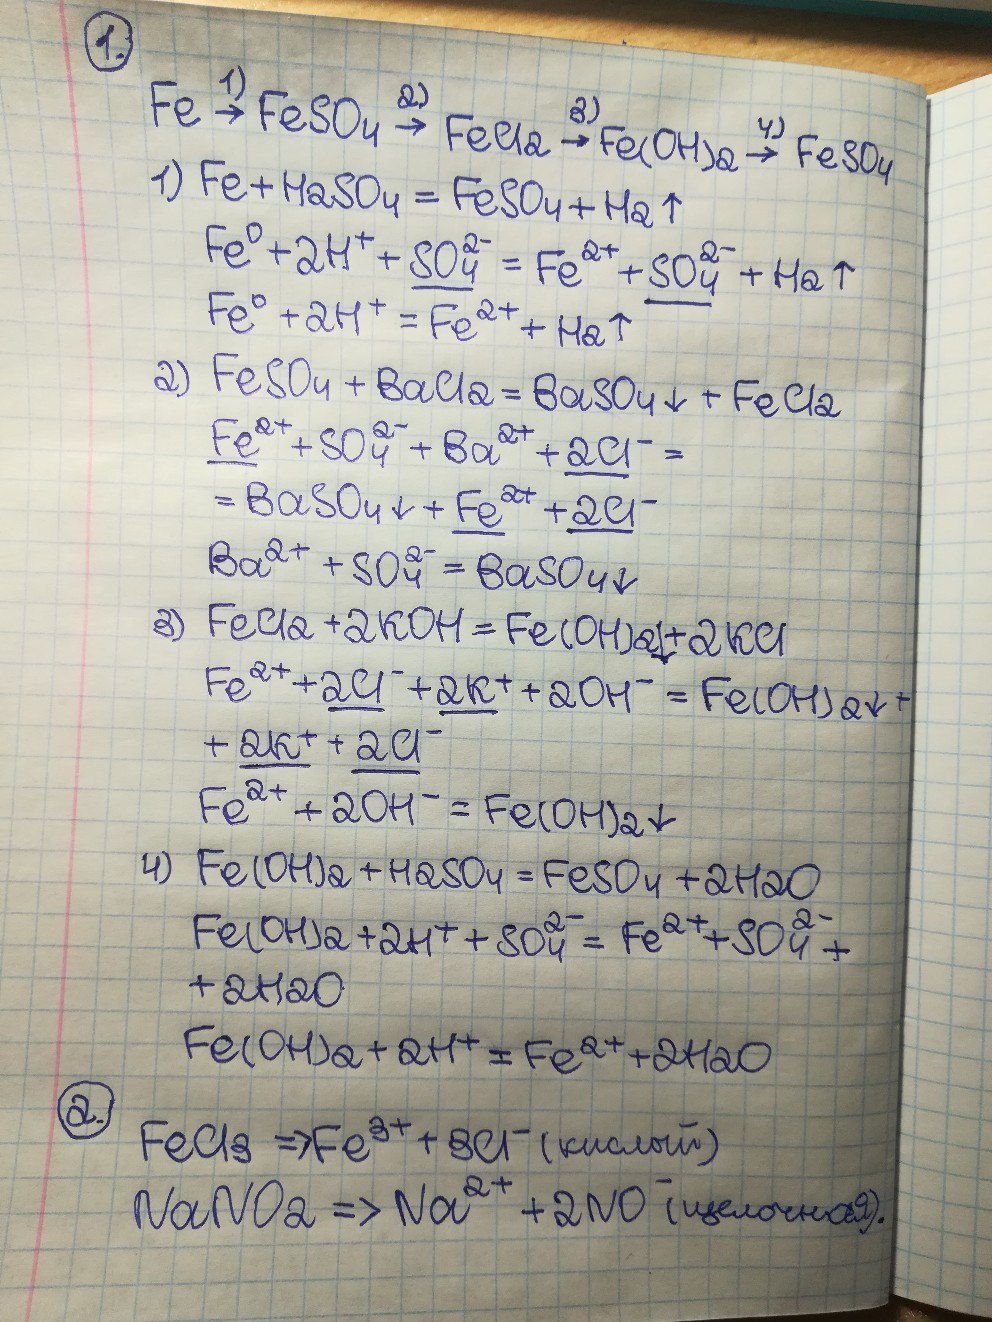 1.
Fe →¹⁾ FeSO₄ →²⁾ FeCl₂ →³⁾ Fe(OH)₂ →⁴⁾ FeSO₄
1) Fe + H₂SO₄ = FeSO₄ + H₂↑
Fe⁰ + 2H⁺ + SO₄²⁻ = Fe²⁺ + SO₄²⁻ + H₂↑
Fe⁰ + 2H⁺ = Fe²⁺ + H₂↑
2) FeSO₄ + BaCl₂ = BaSO₄↓ + FeCl₂
Fe²⁺ + SO₄²⁻ + Ba²⁺ + 2Cl⁻ =
= BaSO₄↓ + Fe²⁺ + 2Cl⁻
Ba²⁺ + SO₄²⁻ = BaSO₄↓
3) FeCl₂ + 2KOH = Fe(OH)₂↓ + 2KCl
Fe²⁺ + 2Cl⁻ + 2K⁺ + 2OH⁻ = Fe(OH)₂↓ +
+ 2K⁺ + 2Cl⁻
Fe²⁺ + 2OH⁻ = Fe(OH)₂↓
4) Fe(OH)₂ + H₂SO₄ = FeSO₄ + 2H₂O
Fe(OH)₂ + 2H⁺ + SO₄²⁻ = Fe²⁺ + SO₄²⁻ +
+ 2H₂O
Fe(OH)₂ + 2H⁺ = Fe²⁺ + 2H₂O
2.
FeCl₃ => Fe³⁺ + 3Cl⁻ (кислый)
NaNO₂ => Na²⁺ + 2NO⁻ (щелочная).